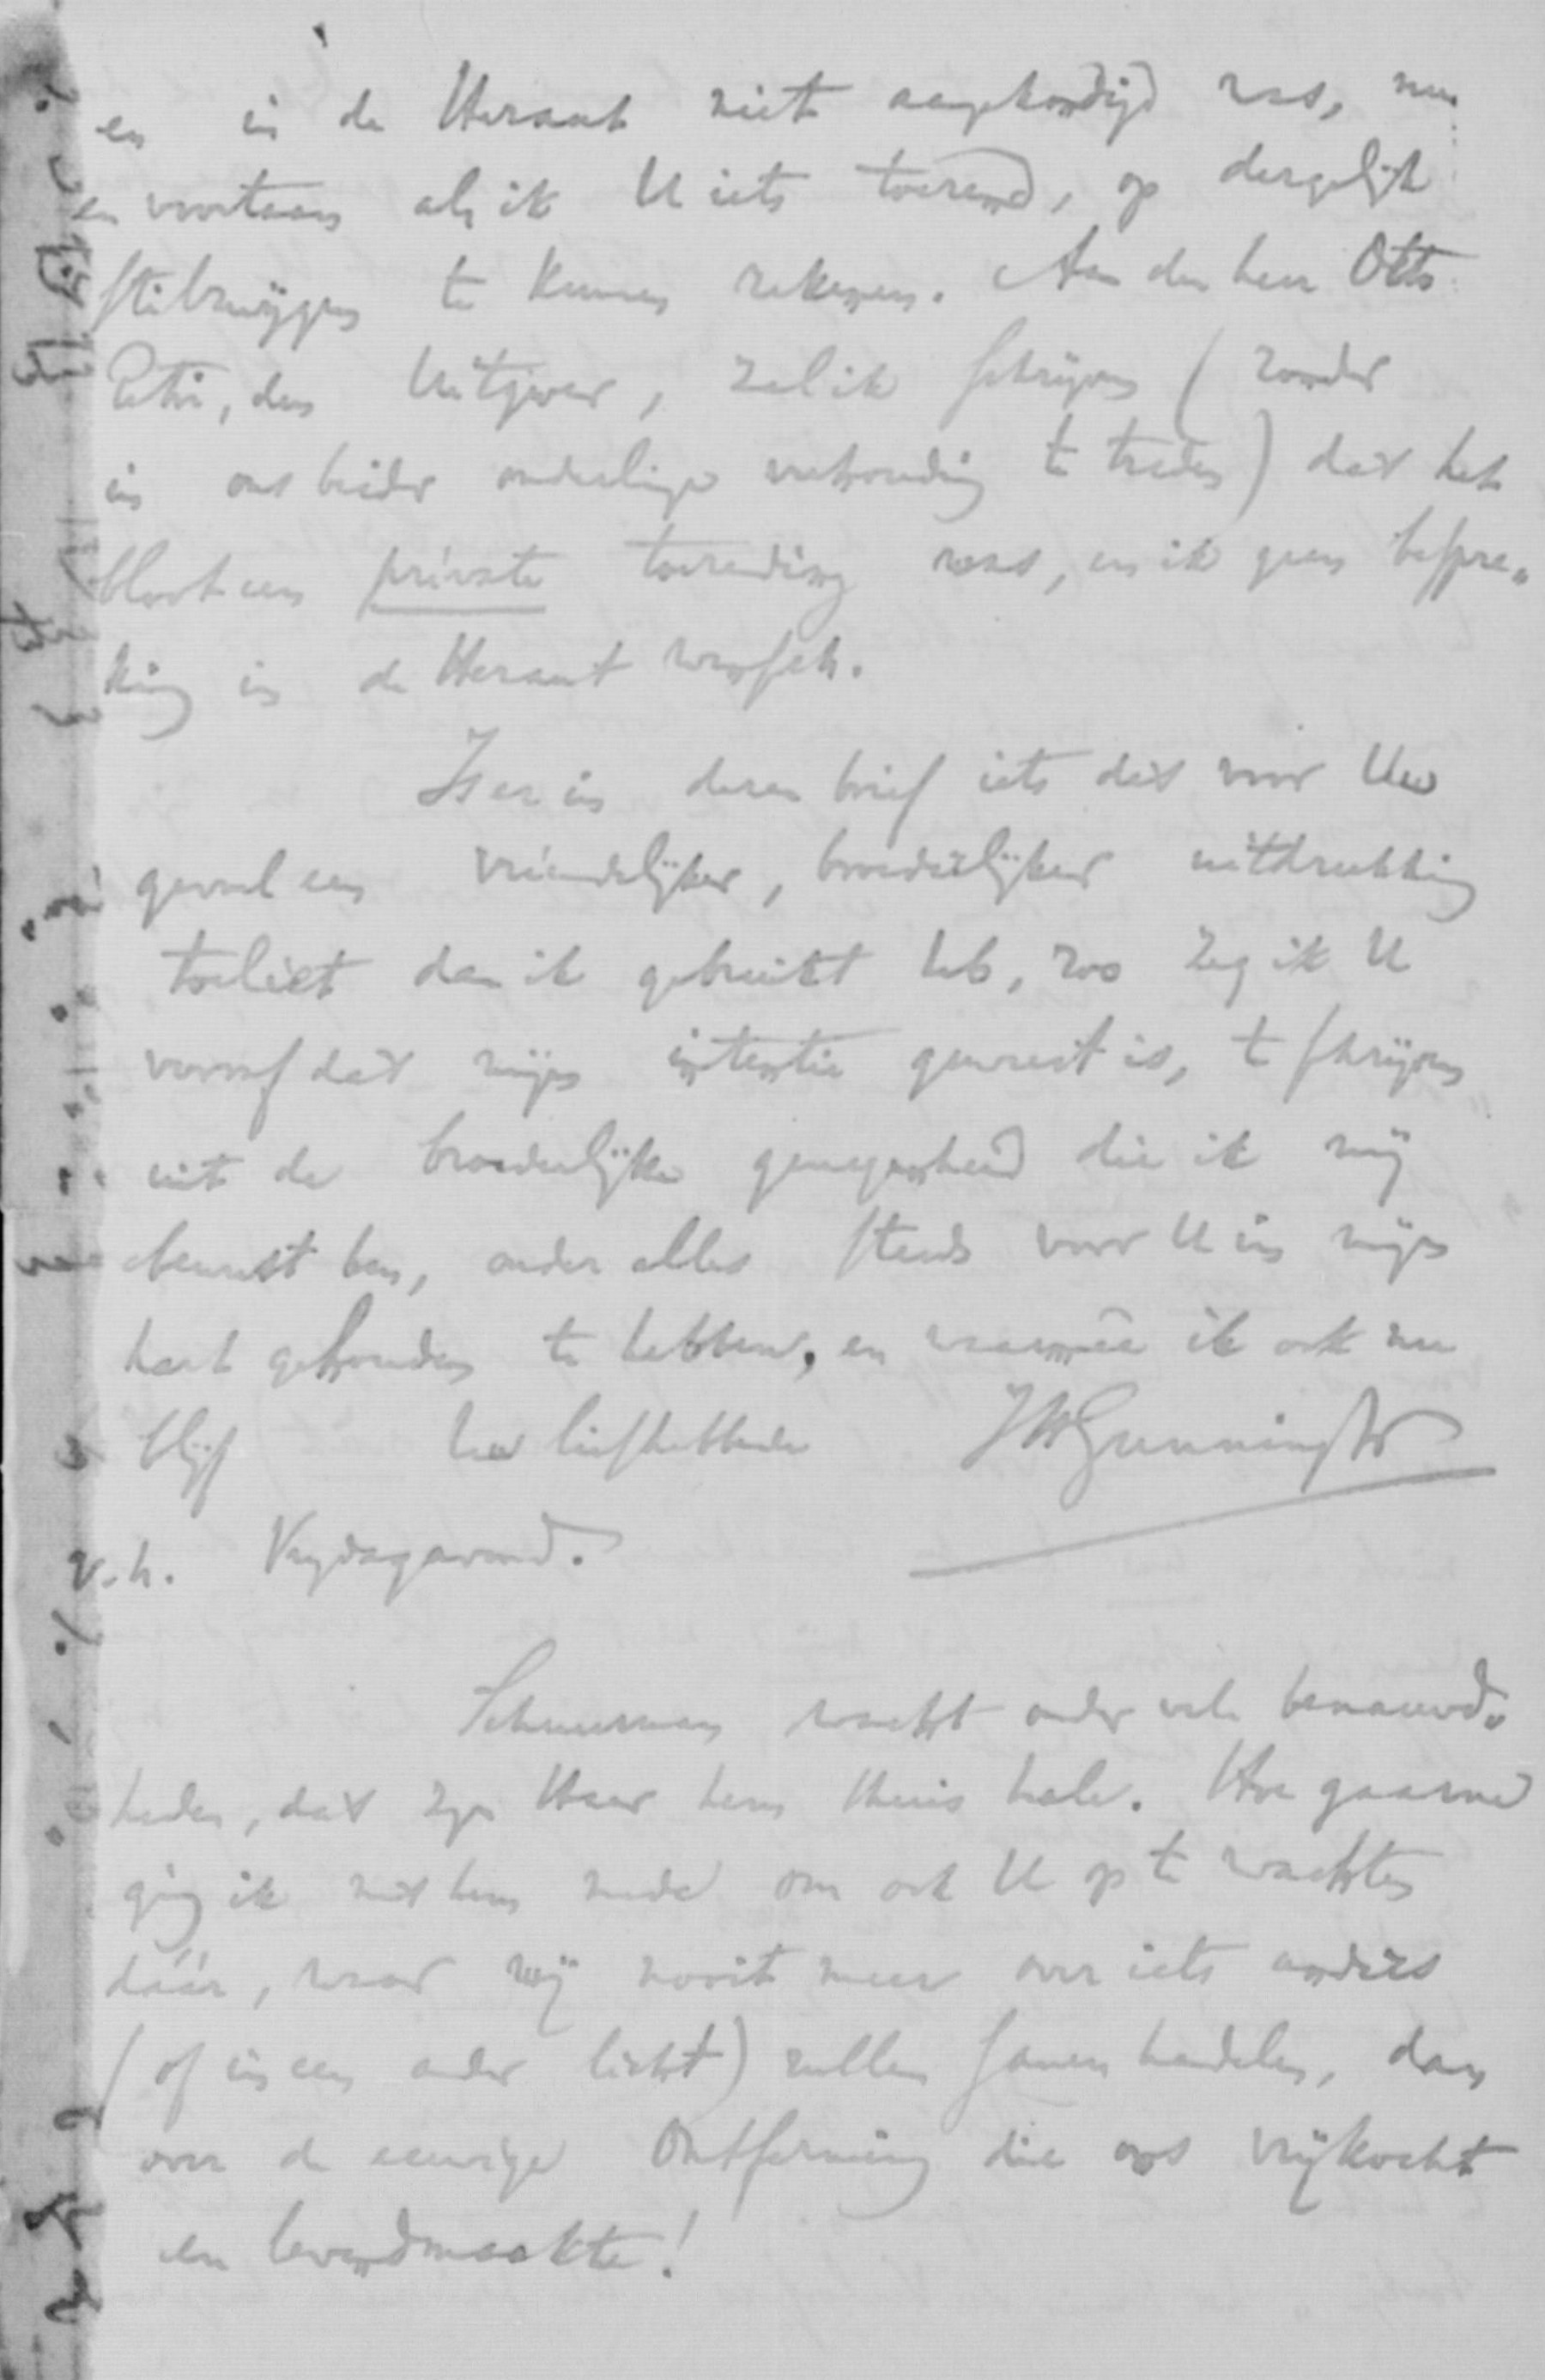 en in de Heraut niet aangekondigd was, nu
en voortaan als ik U iets toezend, op dergelijk
stilzwijgen te kunnen rekenen. Aan den heer Otto
Petri, den Uitgever, zal ik schrijven (zonder
in ons beider onderlinge verhouding te treden) dat het
bloot een private toezending was, en ik geen bespre„
king in de Heraut wensch.
Is er in dezen brief iets dat voor Uw
gevoel een vriendelijker, broederlijker uitdrukking
toeliet dan ik gebruikt heb, zoo zeg ik U
vooraf dat mijn intentie geweest is, te schrijven
uit de broederlijke genegenheid die ik mij
bewust ben, onder alles steeds voor U in mijn
hart gehouden te hebben, en waarmêe ik ook nu
blijf Uw liefhebbende JHGunning Jr
v. h. Vrydagavond.
Schuurman wacht onder vele benauwd„
heden, dat zyn Heer hem thuis hale. Hoe gaarne
ging ik met hem mede om ook U op te wachten
dáár, waar wij nooit meer over iets anders
(of in een ander licht) zullen samen handelen, dan
over de eeuwige Ontferming die ons vrijkocht
en levendmaakte!